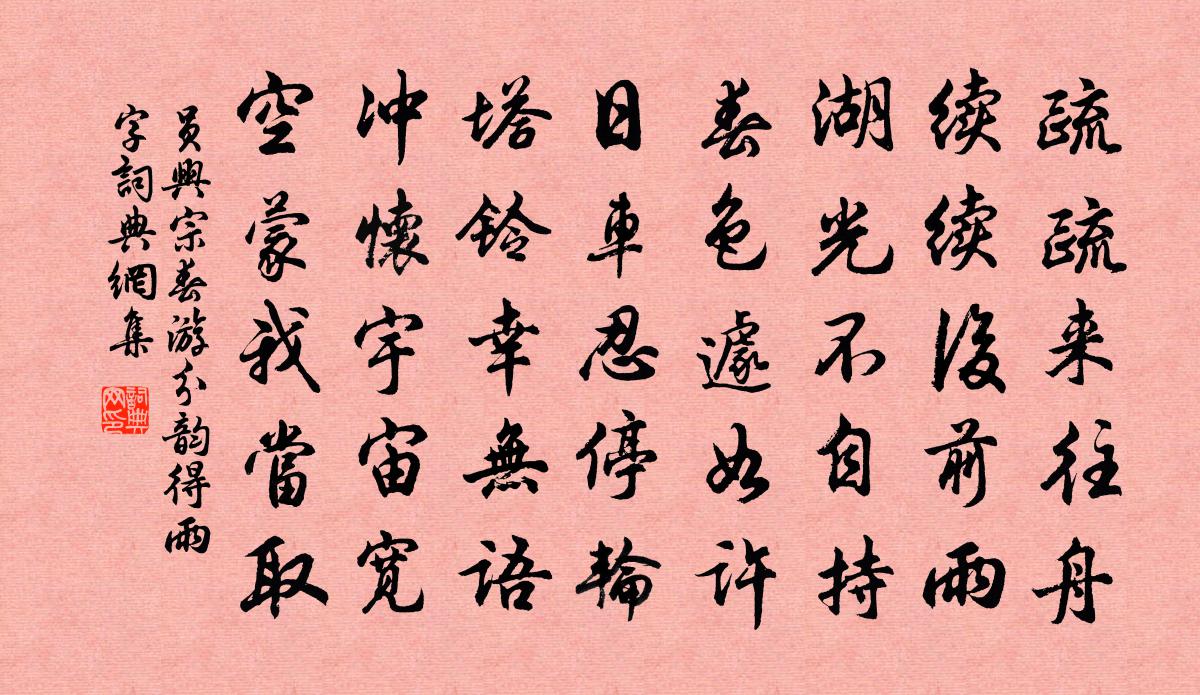 疏疏来往舟
续续後前雨
湖光不自持
春色遽如许
日車忍停輪
塔铃幸無语
冲懷宇宙宽
空蒙我當取
员興宗春游分韵得雨
字詞典網集
詞典
网印